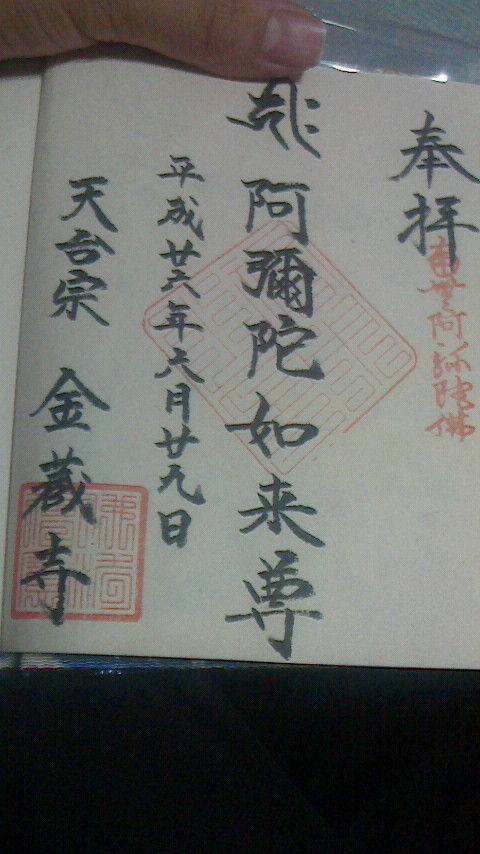 奉拝
南無阿弥陀佛
阿彌陀如来尊
平成廿六年六月廿九日
天台宗 金蔵寺